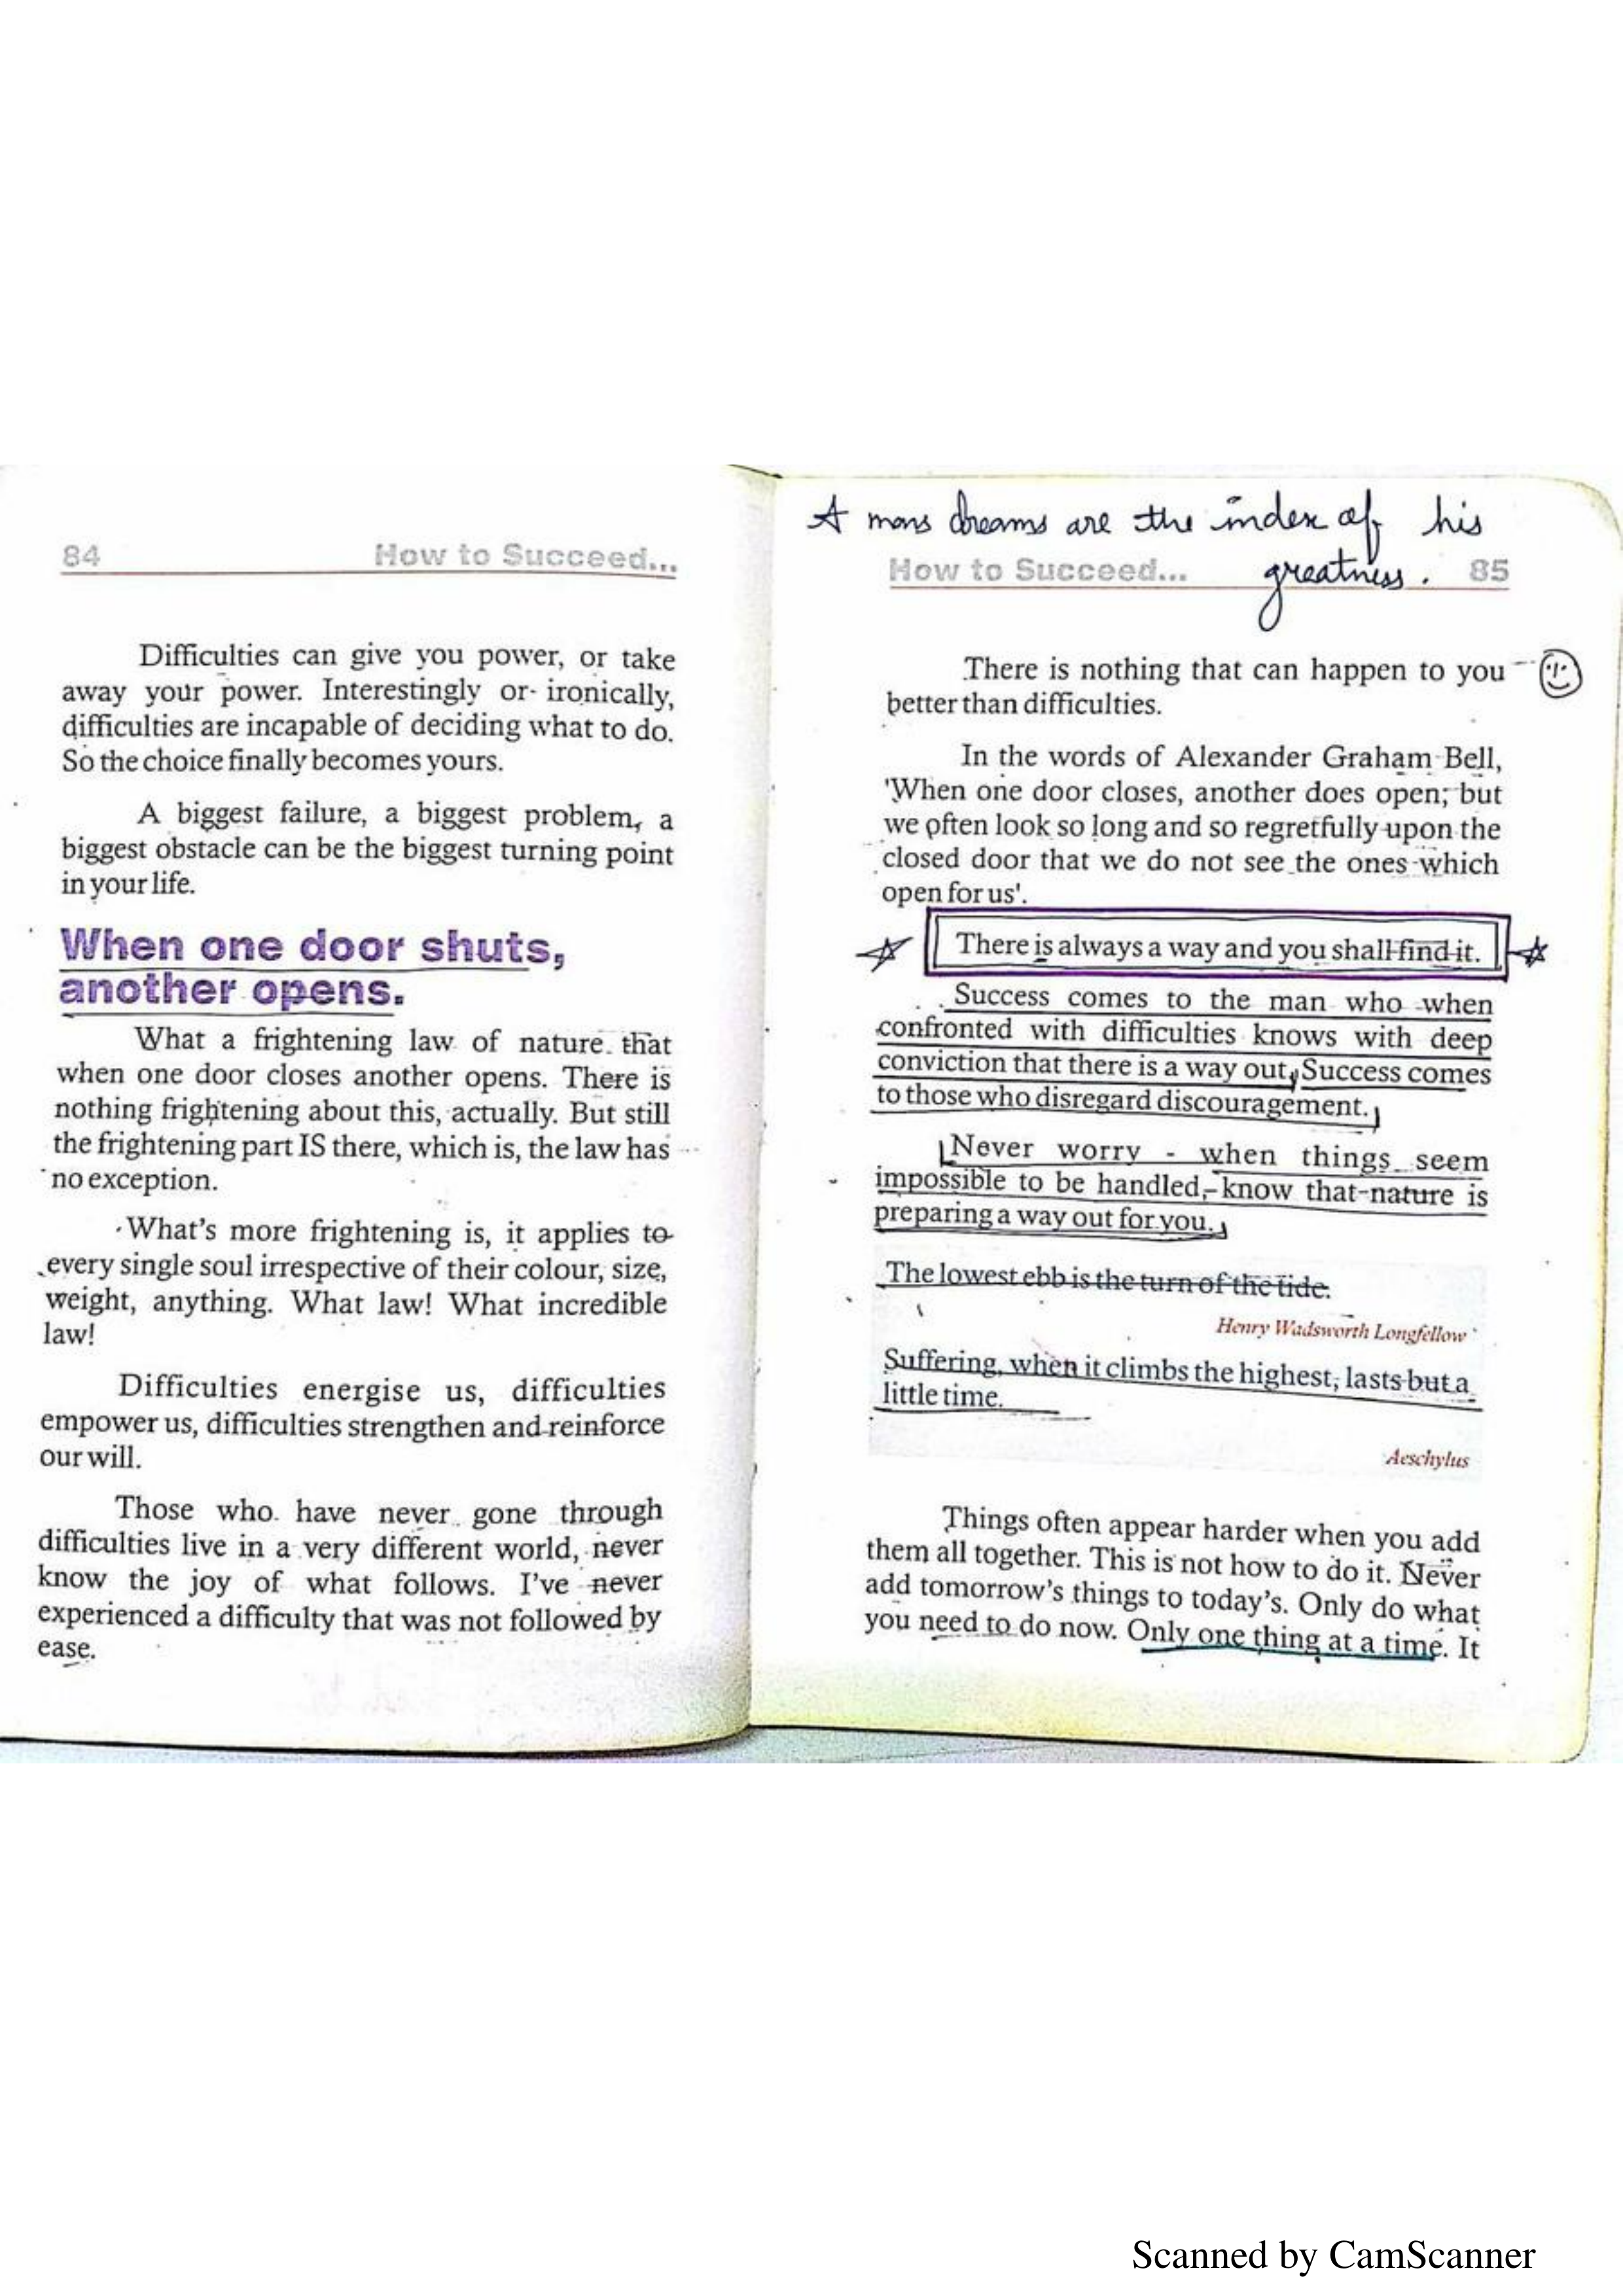 84 How to Succeed...
Difficulties can give you power, or take
away your power. Interestingly or ironically,
difficulties are incapable of deciding what to do.
So the choice finally becomes yours.
A biggest failure, a biggest problem, a
biggest obstacle can be the biggest turning point
in your life.
When one door shuts,
another opens.
What a frightening law of nature that
when one door closes another opens. There is
nothing frightening about this, actually. But still
the frightening part IS there, which is, the law has
no exception.
What's more frightening is, it applies to
every single soul irrespective of their colour, size,
weight, anything. What law! What incredible
law!
Difficulties energise us, difficulties
empower us, difficulties strengthen and reinforce
our will.
Those who have never gone through
difficulties live in a very different world, never
know the joy of what follows. I've never
experienced a difficulty that was not followed by
ease.
A mans dreams are the index of his
greatness.
How to Succeed... 85
There is nothing that can happen to you
better than difficulties.
In the words of Alexander Graham Bell,
'When one door closes, another does open; but
we often look so long and so regretfully upon the
closed door that we do not see the ones which
open for us'.
There is always a way and you shall find it.
Success comes to the man who when
confronted with difficulties knows with deep
conviction that there is a way out, Success comes
to those who disregard discouragement.
Never worry - when things seem
impossible to be handled, know that nature is
preparing a way out for you.
The lowest ebb is the turn of the tide.
Henry Wadsworth Longfellow
Suffering, when it climbs the highest, lasts but a
little time.
Aeschylus
Things often appear harder when you add
them all together. This is not how to do it. Never
add tomorrow's things to today's. Only do what
you need to do now. Only one thing at a time. It
Scanned by CamScanner